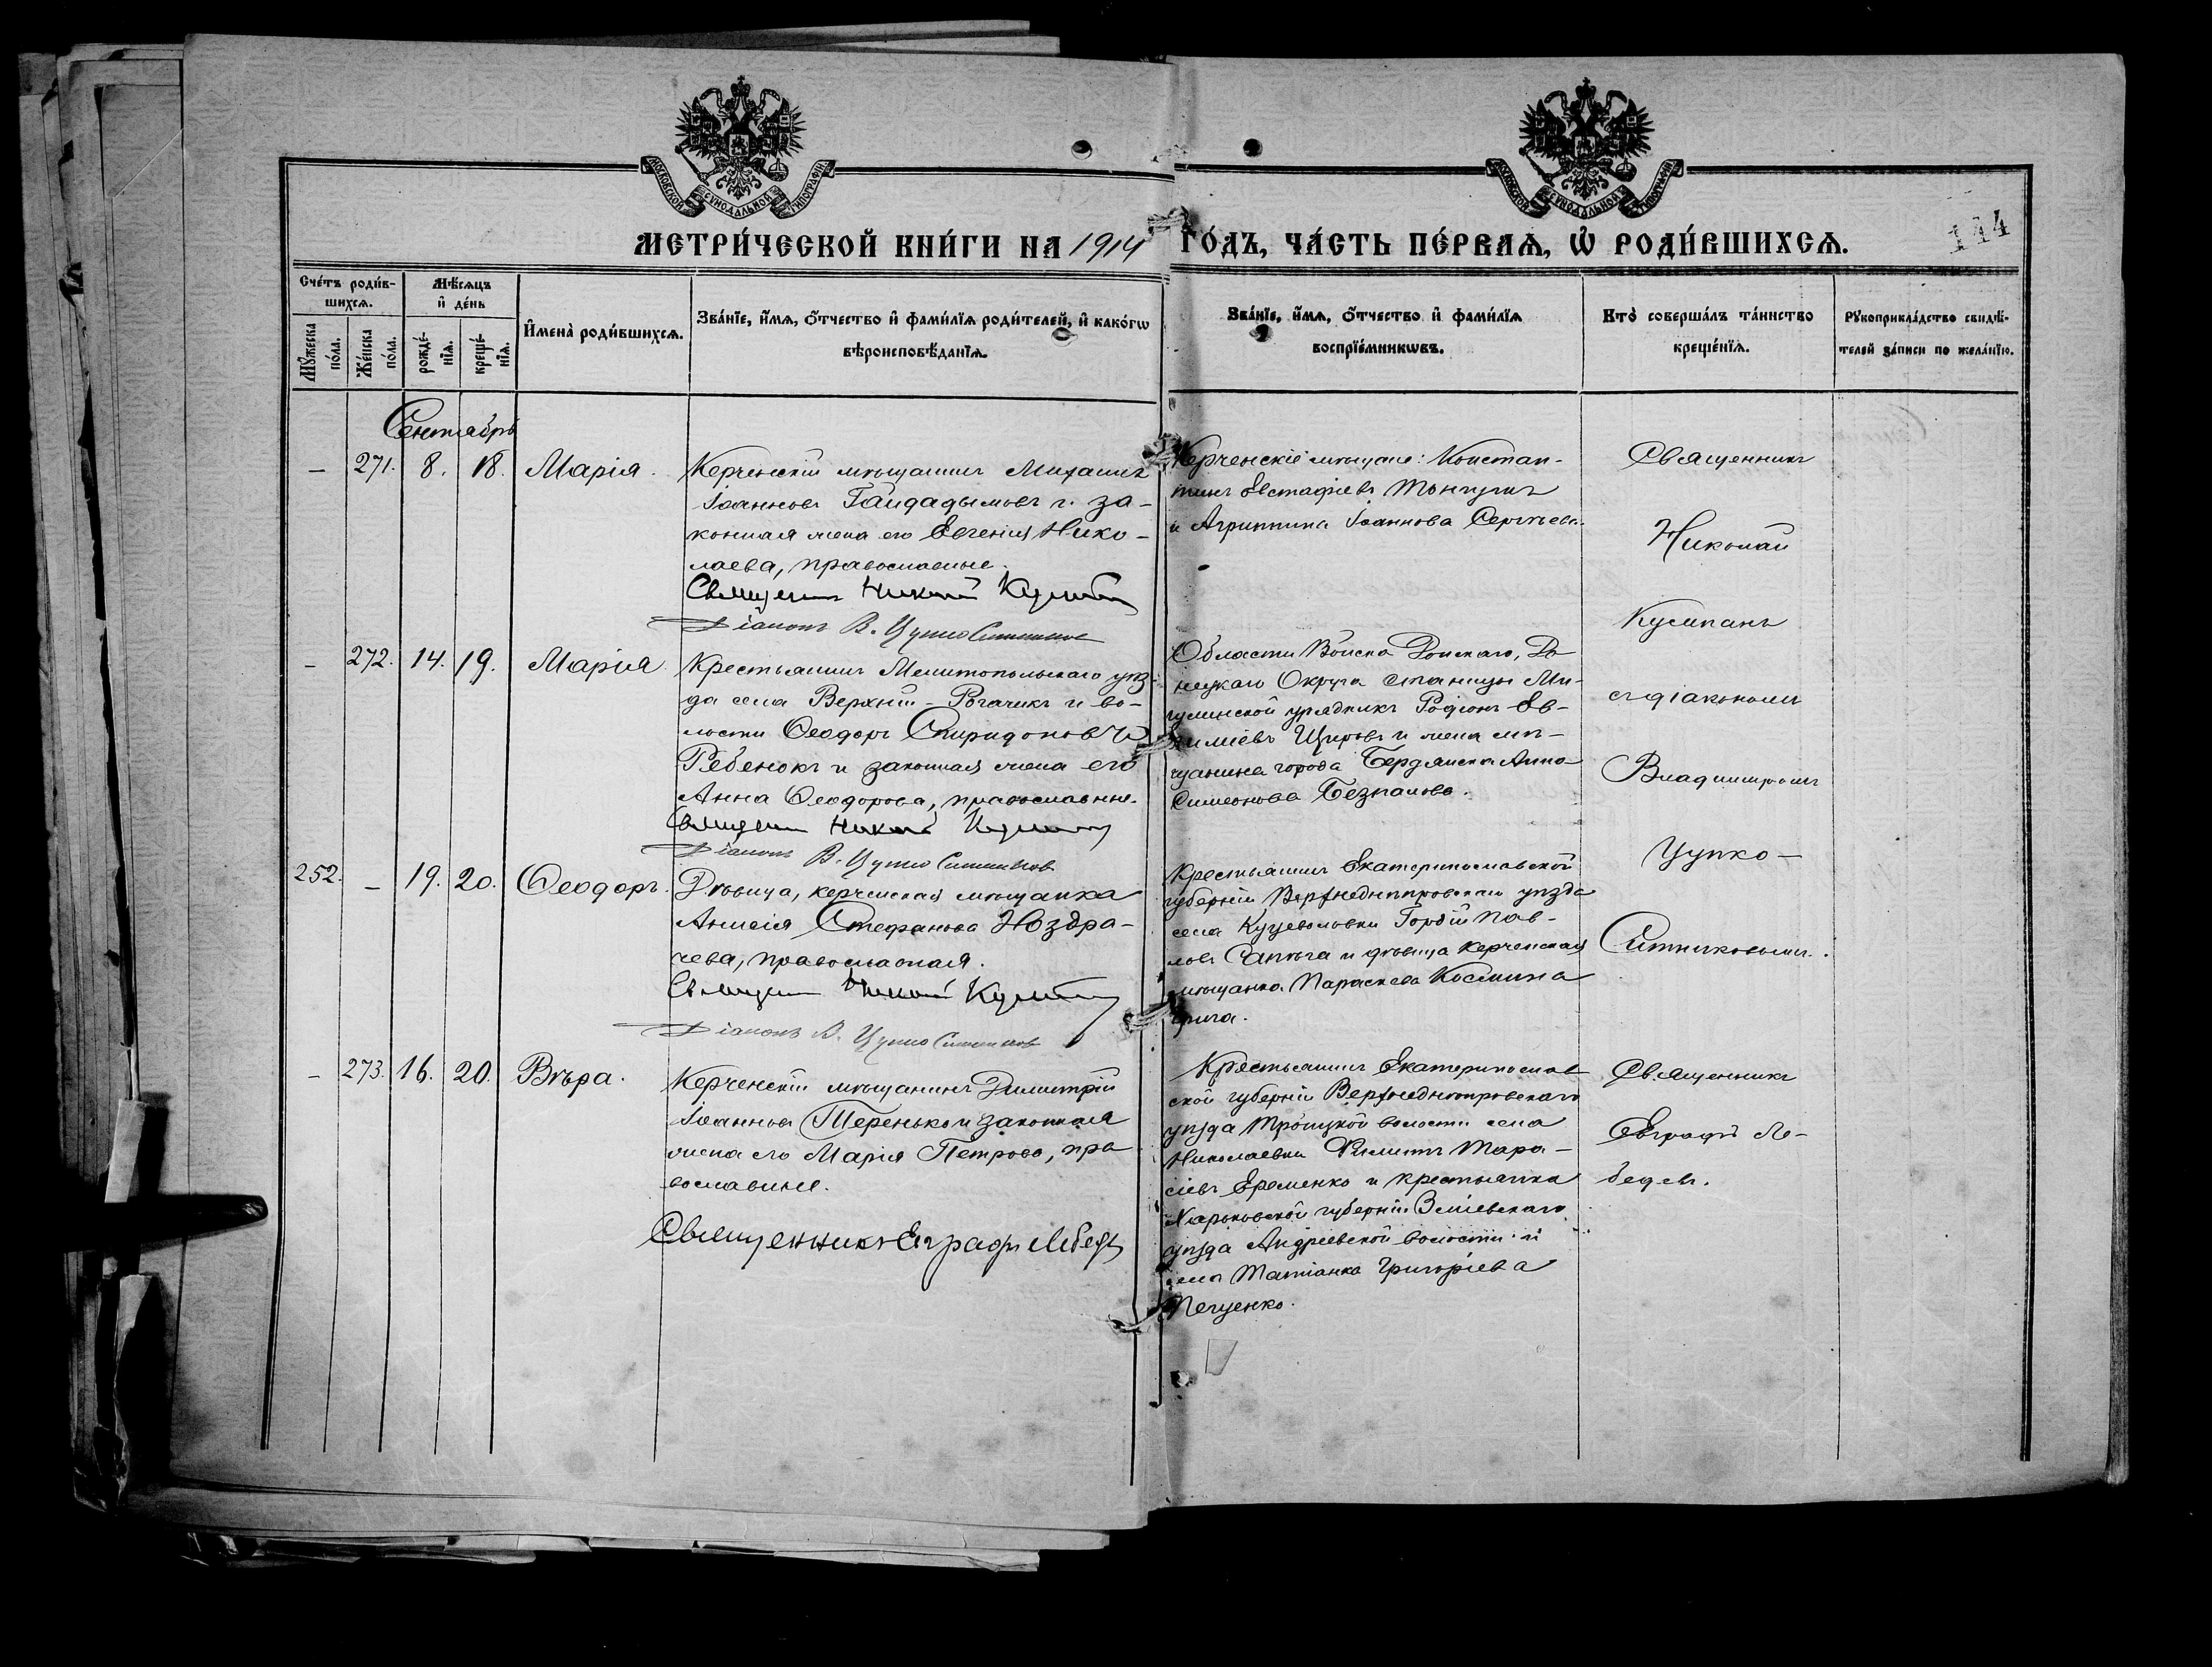 МОСКОВСКОЙ СѴНОДАЛЬНОЙ ТИПОГРАФІИ
МОСКОВСКОЙ СѴНОДАЛЬНОЙ ТИПОГРАФІИ
МЕТРИ́ЧЕСКОЙ КНИ́ГИ НА 1914 ГО́ДЪ, ЧА́СТЬ ПЕ́РВАѦ, Ѡ҆ РОДИ́ВШИХСѦ.
144
Сче́тъ роди́в-
шихсѧ.
Мꙋ́жеска по́ла.
Же́нска по́ла.
Мѣ́сѧцъ
и҆ де́нь
рожде́-
нїѧ.
креще́-
нїѧ.
И҆мена̀ роди́вшихсѧ.
Зва́нїе, и҆́мѧ, ѻ҆́тчество и҆ фами́лїѧ роди́телей, и҆ како́гѡ
вѣроисповѣ́данїѧ.
Зва́нїе, и҆́мѧ, ѻ҆́тчество и҆ фами́лїѧ
воспрїе́мникѡвъ.
Кто̀ соверша́лъ та́инство
креще́нїѧ.
Рꙋкоприкла́дство свидѣ́-
телей за́писи по жела́нїю.
Сентябрь
– 271. 8. 18. Марія.
Керченскій мѣщанинъ Михаилъ
Іоанновъ Гайдадымовъ и за-
конная жена его Евгенія Нико-
лаева, православные.
Священникъ Николай
Діаконъ В. Цупко Ситниковъ
Керченскіе мѣщане: Констан-
тинъ Евстафіевъ
и Агриппина Іоаннова Сергѣева.
Священникъ
Николай
Кумпанъ
съ діакономъ
Владимиромъ
Цупко-
Ситниковымъ.
– 272. 14. 19. Марія
Крестьянинъ Мелитопольскаго уѣз-
да села Верхній-Рогачикъ и во-
лости Ѳеодоръ Спиридоновъ
Ребенокъ и законная жена его
Анна Ѳеодорова, православные.
Священникъ Николай
Діаконъ В. Цупко Ситниковъ
Области Войска Донскаго, До-
нецкаго Округа станицы Ми-
гулинской урядникъ Родіонъ Ев-
Щировъ и жена мѣ-
щанина города Бердянска Анна
Симеонова
252. – 19. 20. Ѳеодоръ.
Дѣвица, керченская мѣщанка
Стефанова Ноздра-
чева, православная.
Священникъ Николай
Діаконъ В. Цупко Ситниковъ
Крестьянинъ Екатеринославской
губерніи Верхнеднѣпровскаго уѣзда
села Куцеволовки Гордій Пав-
ловъ и дѣвица керченская
мѣщанка Параскева Космина
– 273. 16. 20. Вѣра.
Керченскій мѣщанинъ Димитрій
Іоанновъ Теренько и законная
жена его Марія Петрова, пра-
вославные.
Священникъ Евграфъ Лебедевъ
Крестьянинъ Екатеринослав-
ской губерніи Верхнеднѣпровскаго
уѣзда Троицкой волости села
Николаевки Филиппъ Тара-
сіевъ Еременко и крестьянка
Харьковской губерніи Зміевскаго
уѣзда Андреевской волости и
села Татіанка Григоріева
Пегуенко.
Священникъ
Евграфъ Ле-
бедевъ.